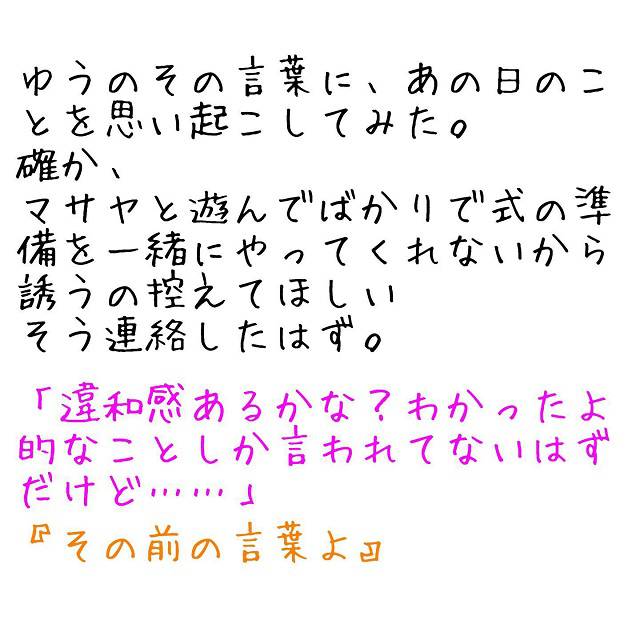 ゆうのその言葉に、あの日のこ
とを思い起こしてみた。
確か、
マサヤと遊んでばかりで式の準
備を一緒にやってくれないから
誘うの控えてほしい
そう連絡したはず。
「違和感あるかな？わかったよ
的なことしか言われてないはず
だけど……」
『その前の言葉よ』